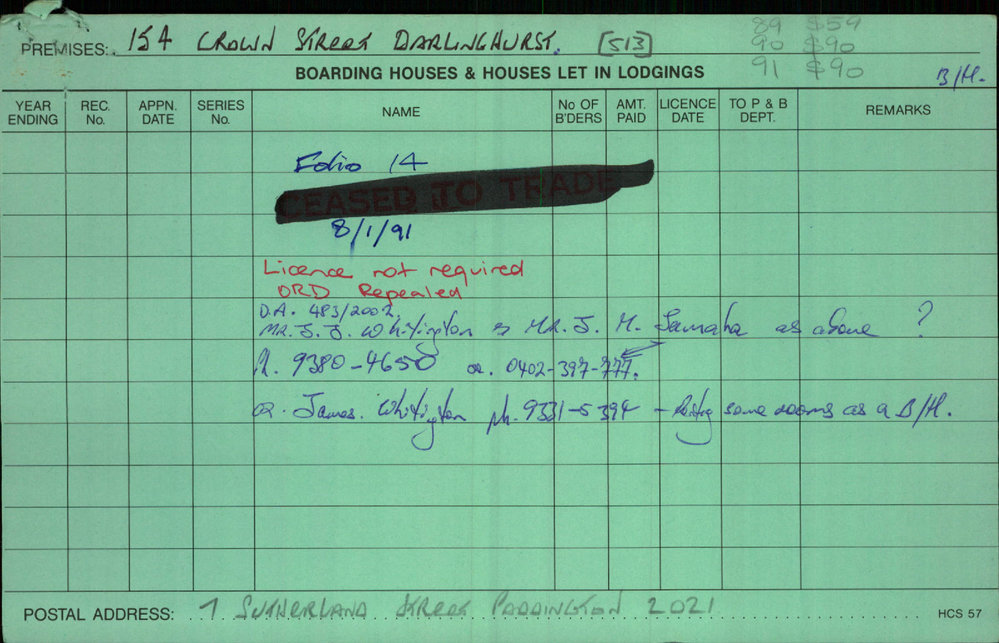 PREMISES: 154 CROWN STREET DARLINGHURST. [513]
89 $59
90 $90
91 $90
BOARDING HOUSES & HOUSES LET IN LODGINGS
B/H.
YEAR ENDING REC. No. APPN. DATE SERIES No. NAME No OF B'DERS AMT. PAID LICENCE DATE TO P & B DEPT. REMARKS
Folio 14
CEASED TO TRADE
8/1/91
Licence not required
ORD Repealed
D.A. 483/2002.
MR. J. J. Whitington & MR. J. M. Samaha as above ?
Ph. 9380-4650 or. 0402-397-777.
or. James. Whitington ph. 9331-5394 - some rooms as a B/H.
POSTAL ADDRESS: 7 SUTHERLAND STREET PADDINGTON 2021
HCS 57